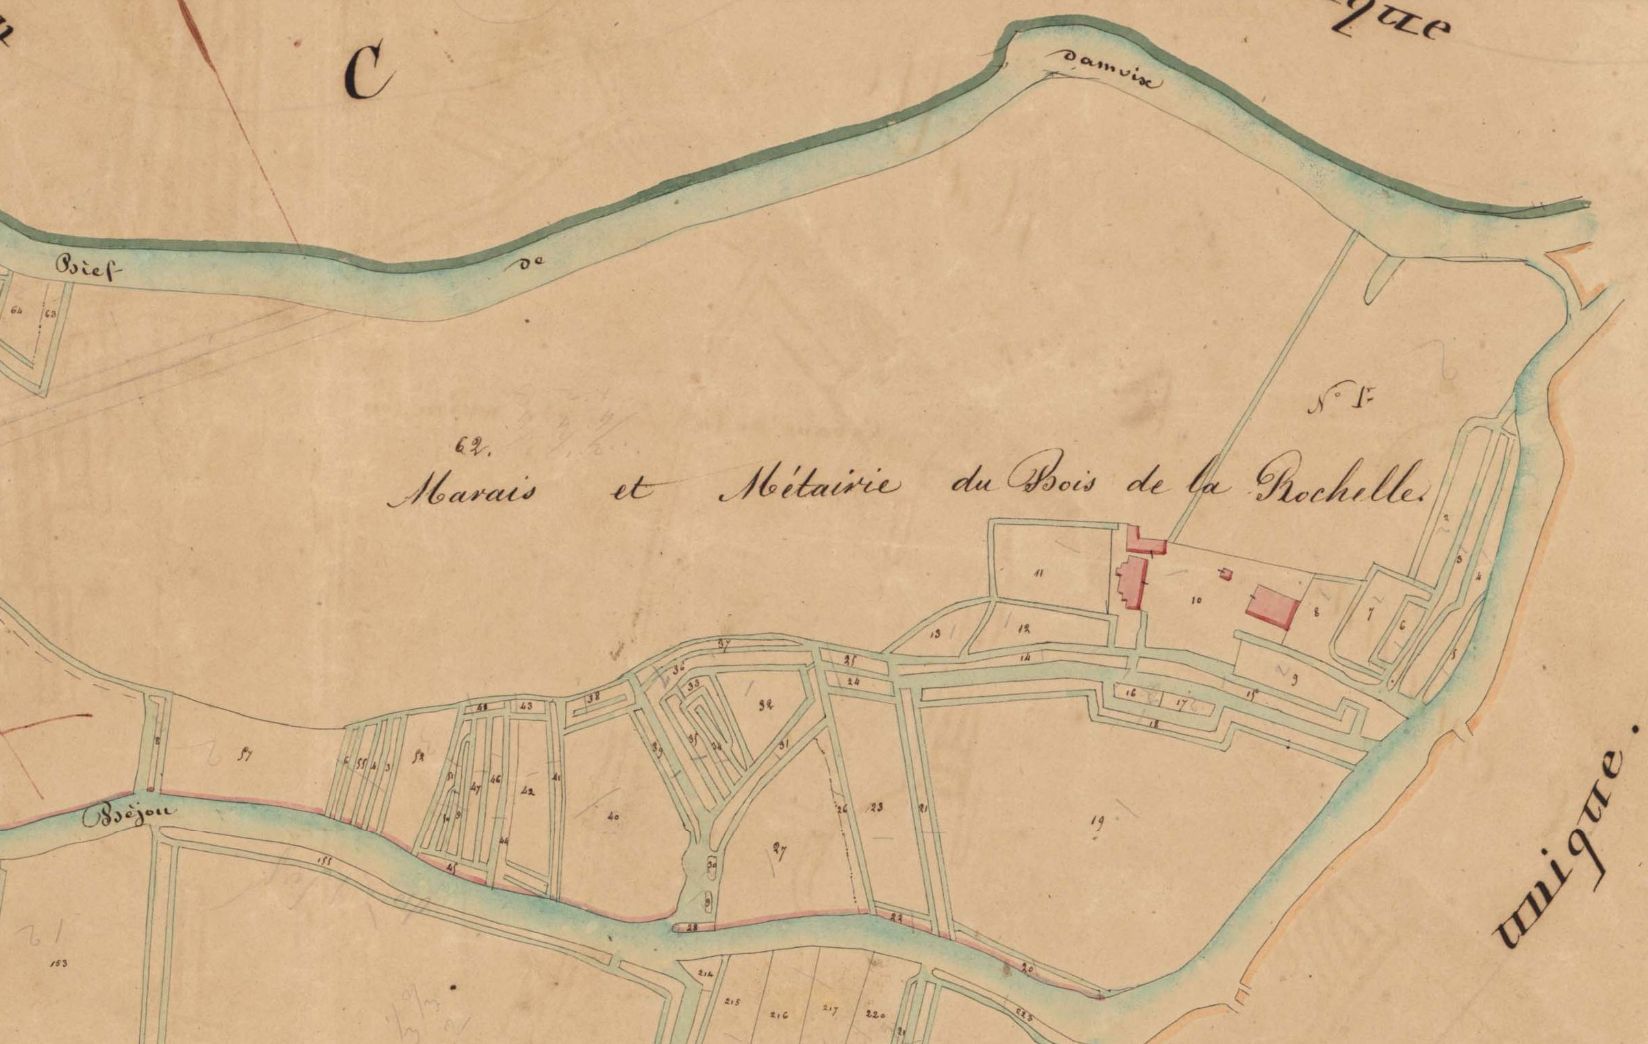 que
C
Damvix
Bief
de
64
63
N° 1er
62.
Marais et Métairie du Bois de la Rochelle.
2
3
4
11
10
8
7
6
5
13
12
9
37
25
14
36
24
16
17
15
18
38
33
32
43
39
35
34
31
57
55
4
3
52
51
47
46
42
41
40
26
23
21
19
Béjou
44
45
27
30
28
22
20
155
153
214
215
216
217
220
225
21
unique.